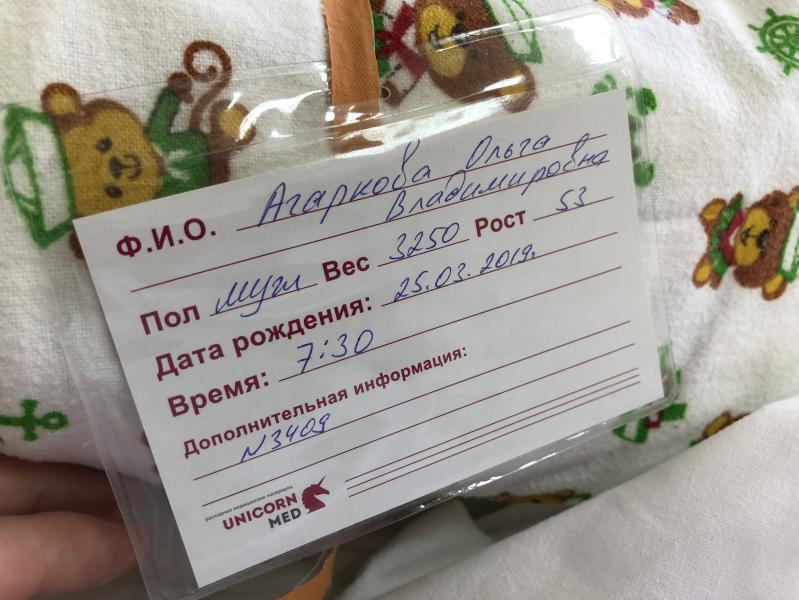 Ф.И.О. Агаркова Ольга
Владимировна
Пол муж Вес 3250 Рост 53
Дата рождения: 25.03.2019.
Время: 7:30
Дополнительная информация:
N3409
расходные медицинские материалы
UNICORN
MED